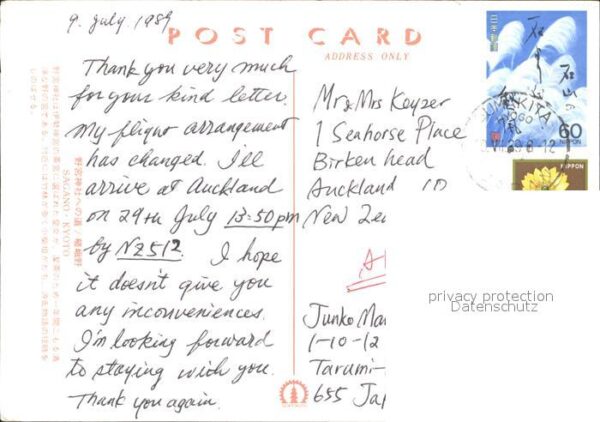 9. July. 1989
POST CARD
ADDRESS ONLY
Thank you very much
for your kind letter.
My flight arrangement
has changed. I'll
arrive at Auckland
on 29th July 13:50pm
by NZ512. I hope
it doesn't give you
any inconveniences.
I'm looking forward
to staying with you.
Thank you again.
Mr & Mrs Keyzer
1 Seahorse Place
Birkenhead
Auckland 10
New Zea
Junko Ma
1-10-12
Tarumi-
655 Jap
野宮神社への道/嵯峨野
SAGANO・KYOTO
60
NIPPON
NIPPON
privacy protection
Datenschutz